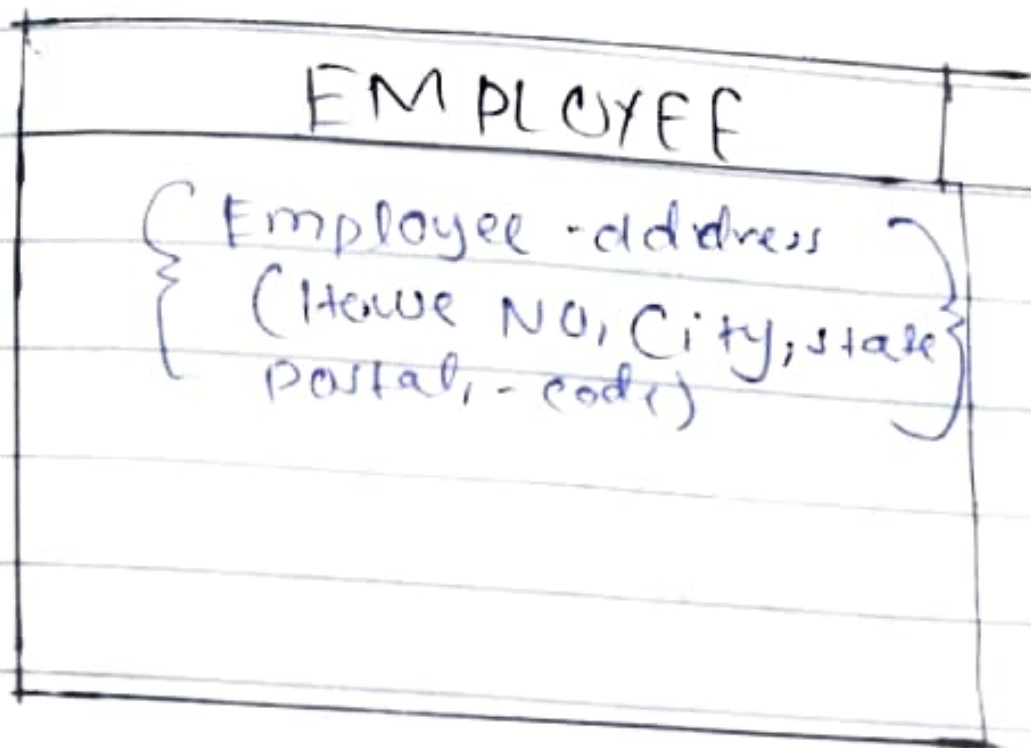 EMPLOYEE
{ Employee -address }
(House NO, City, state
postal, - code)